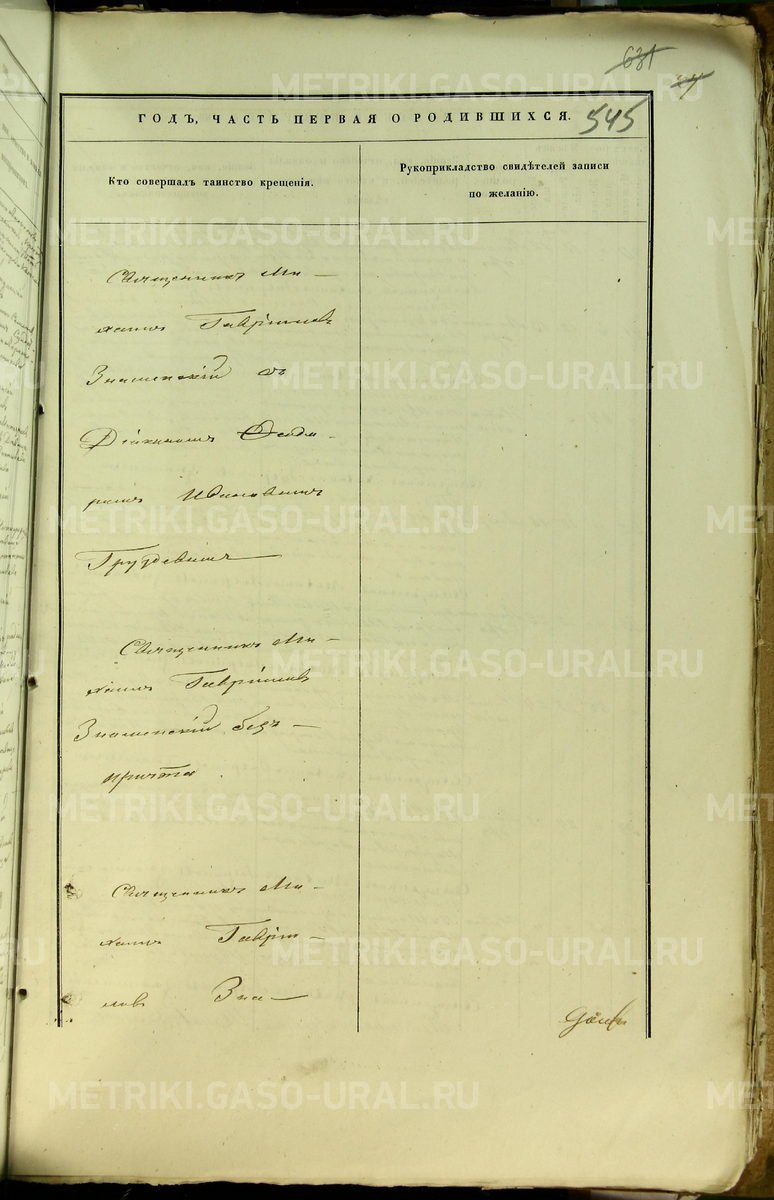 631
545
ГОДЪ, ЧАСТЬ ПЕРВАЯ О РОДИВШИХСЯ.
Кто совершалъ таинство крещенія.
Рукоприкладство свидѣтелей записи
по желанію.
Священникъ Ми-
хаилъ Гавріиловъ
Знаменскій съ
Діакономъ Ѳеодо-
ромъ Ивановымъ
Груздевымъ
Священникъ Ми-
хаилъ Гавріиловъ
Знаменскій безъ
причта
Священникъ Ми-
хаилъ Гаврiи-
ловъ Зна-
METRIKI.GASO-URAL.RU